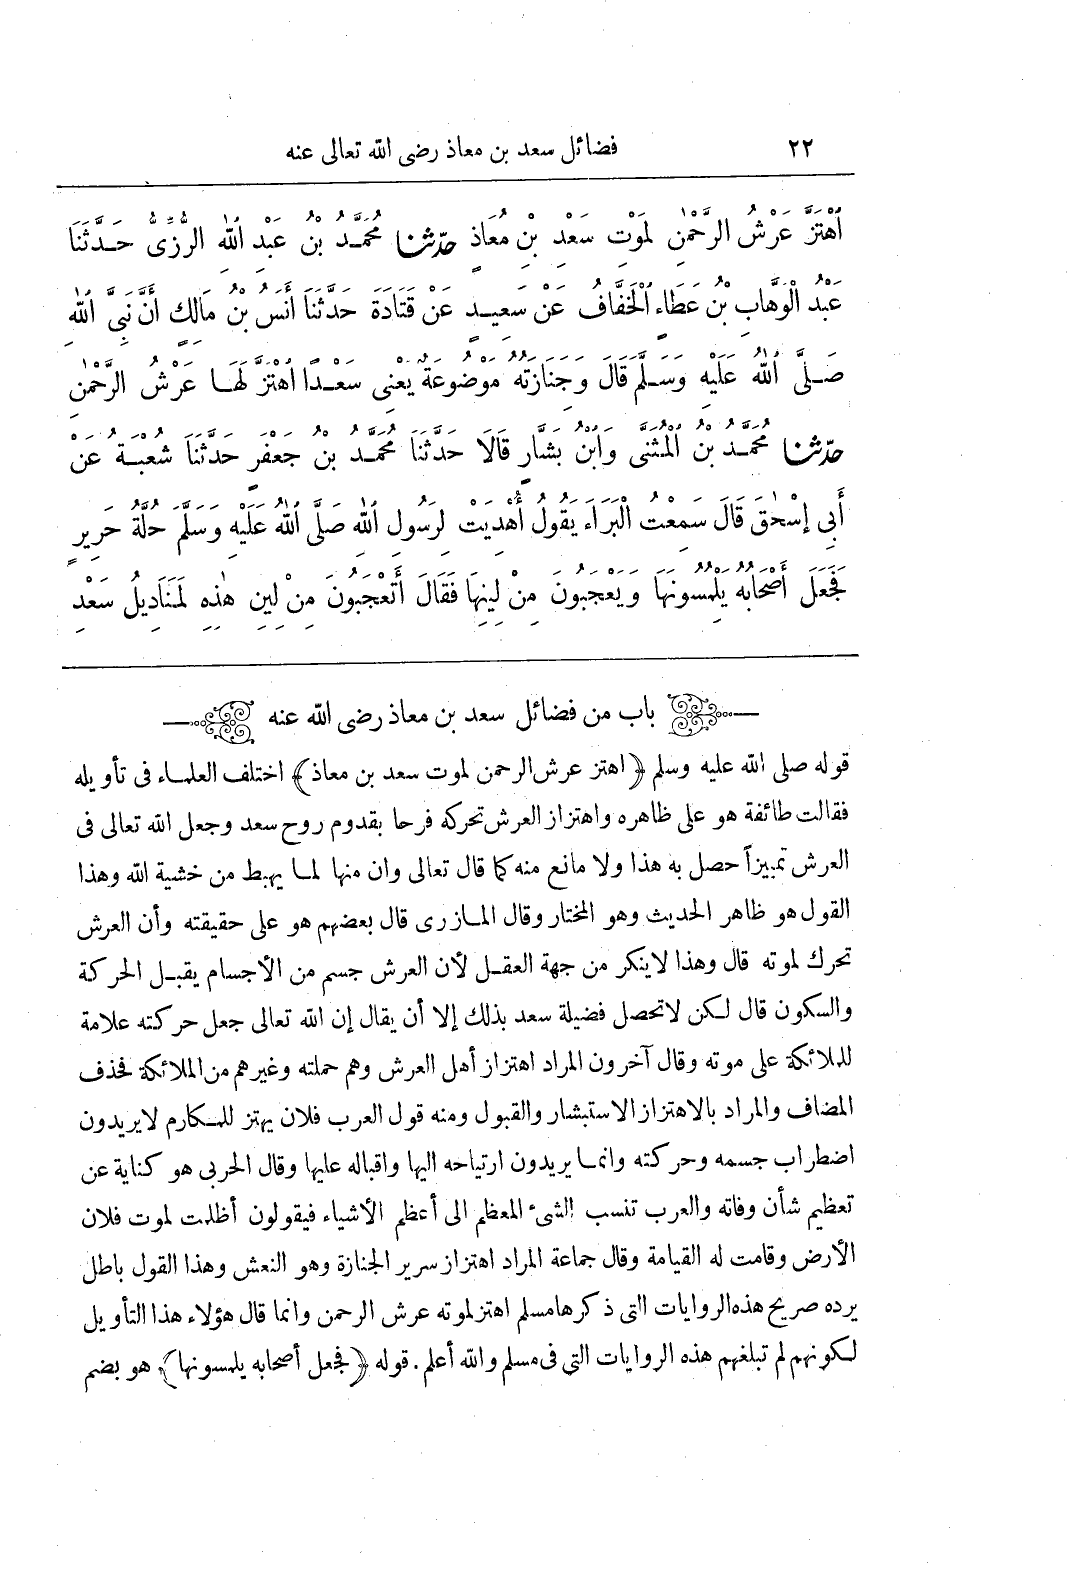 ٢٢ فضائل سعد بن معاذ رضى الله تعالى عنه
أَهْتَزَّ عَرْشُ الرَّحْمٰنِ لِمَوْتِ سَعْدِ بْنِ مُعَاذٍ حدّثنا مُحَمَّدُ بْنُ عَبْدِ اللهِ الرُّزِّىُّ حَدَّثَنَا
عَبْدُ الْوَهَّابِ بْنُ عَطَاءٍ الْخَفَّافُ عَنْ سَعِيدٍ عَنْ قَتَادَةَ حَدَّثَنَا أَنَسُ بْنُ مَالِكٍ أَنَّ نَبِىَّ اللهِ
صَلَّى اللهُ عَلَيْهِ وَسَلَّمَ قَالَ وَجَنَازَتُهُ مَوْضُوعَةٌ يَعْنِى سَعْدًا اهْتَزَّ لَهَا عَرْشُ الرَّحْمٰنِ
حدّثنا مُحَمَّدُ بْنُ الْمُثَنَّى وَابْنُ بَشَّارٍ قَالَا حَدَّثَنَا مُحَمَّدُ بْنُ جَعْفَرٍ حَدَّثَنَا شُعْبَةُ عَنْ
أَبِى إِسْحٰقَ قَالَ سَمِعْتُ الْبَرَاءَ يَقُولُ أُهْدِيَتْ لِرَسُولِ اللهِ صَلَّى اللهُ عَلَيْهِ وَسَلَّمَ حُلَّةُ حَرِيرٍ
فَجَعَلَ أَصْحَابُهُ يَلْمُسُونَهَا وَيَعْجَبُونَ مِنْ لِينِهَا فَقَالَ أَتَعْجَبُونَ مِنْ لِينِ هٰذِهِ لَمَنَادِيلُ سَعْدِ
باب من فضائل سعد بن معاذ رضى الله عنه
قوله صلى الله عليه وسلم ﴿اهتز عرش الرحمن لموت سعد بن معاذ﴾ اختلف العلماء فى تأويله
فقالت طائفة هو على ظاهره واهتزاز العرش تحركه فرحا بقدوم روح سعد وجعل الله تعالى فى
العرش تمييزاً حصل به هذا ولا مانع منه كما قال تعالى وان منها لما يهبط من خشية الله وهذا
القول هو ظاهر الحديث وهو المختار وقال المازرى قال بعضهم هو على حقيقته وأن العرش
تحرك لموته قال وهذا لاينكر من جهة العقل لأن العرش جسم من الأجسام يقبل الحركة
والسكون قال لكن لاتحصل فضيلة سعد بذلك إلا أن يقال إن الله تعالى جعل حركته علامة
للملائكة على موته وقال آخرون المراد اهتزاز أهل العرش وهم حملته وغيرهم من الملائكة فحذف
المضاف والمراد بالاهتزاز الاستبشار والقبول ومنه قول العرب فلان يهتز للمكارم لايريدون
اضطراب جسمه وحركته وانما يريدون ارتياحه اليها واقباله عليها وقال الحربى هو كناية عن
تعظيم شأن وفاته والعرب تنسب الشىء المعظم الى أعظم الأشياء فيقولون أظلمت لموت فلان
الأرض وقامت له القيامة وقال جماعة المراد اهتزاز سرير الجنازة وهو النعش وهذا القول باطل
يرده صريح هذه الروايات التى ذكرها مسلم اهتز لموته عرش الرحمن وانما قال هؤلاء هذا التأويل
لكونهم لم تبلغهم هذه الروايات التى فى مسلم والله أعلم . قوله ﴿فجعل أصحابه يلمسونها﴾ هو بضم